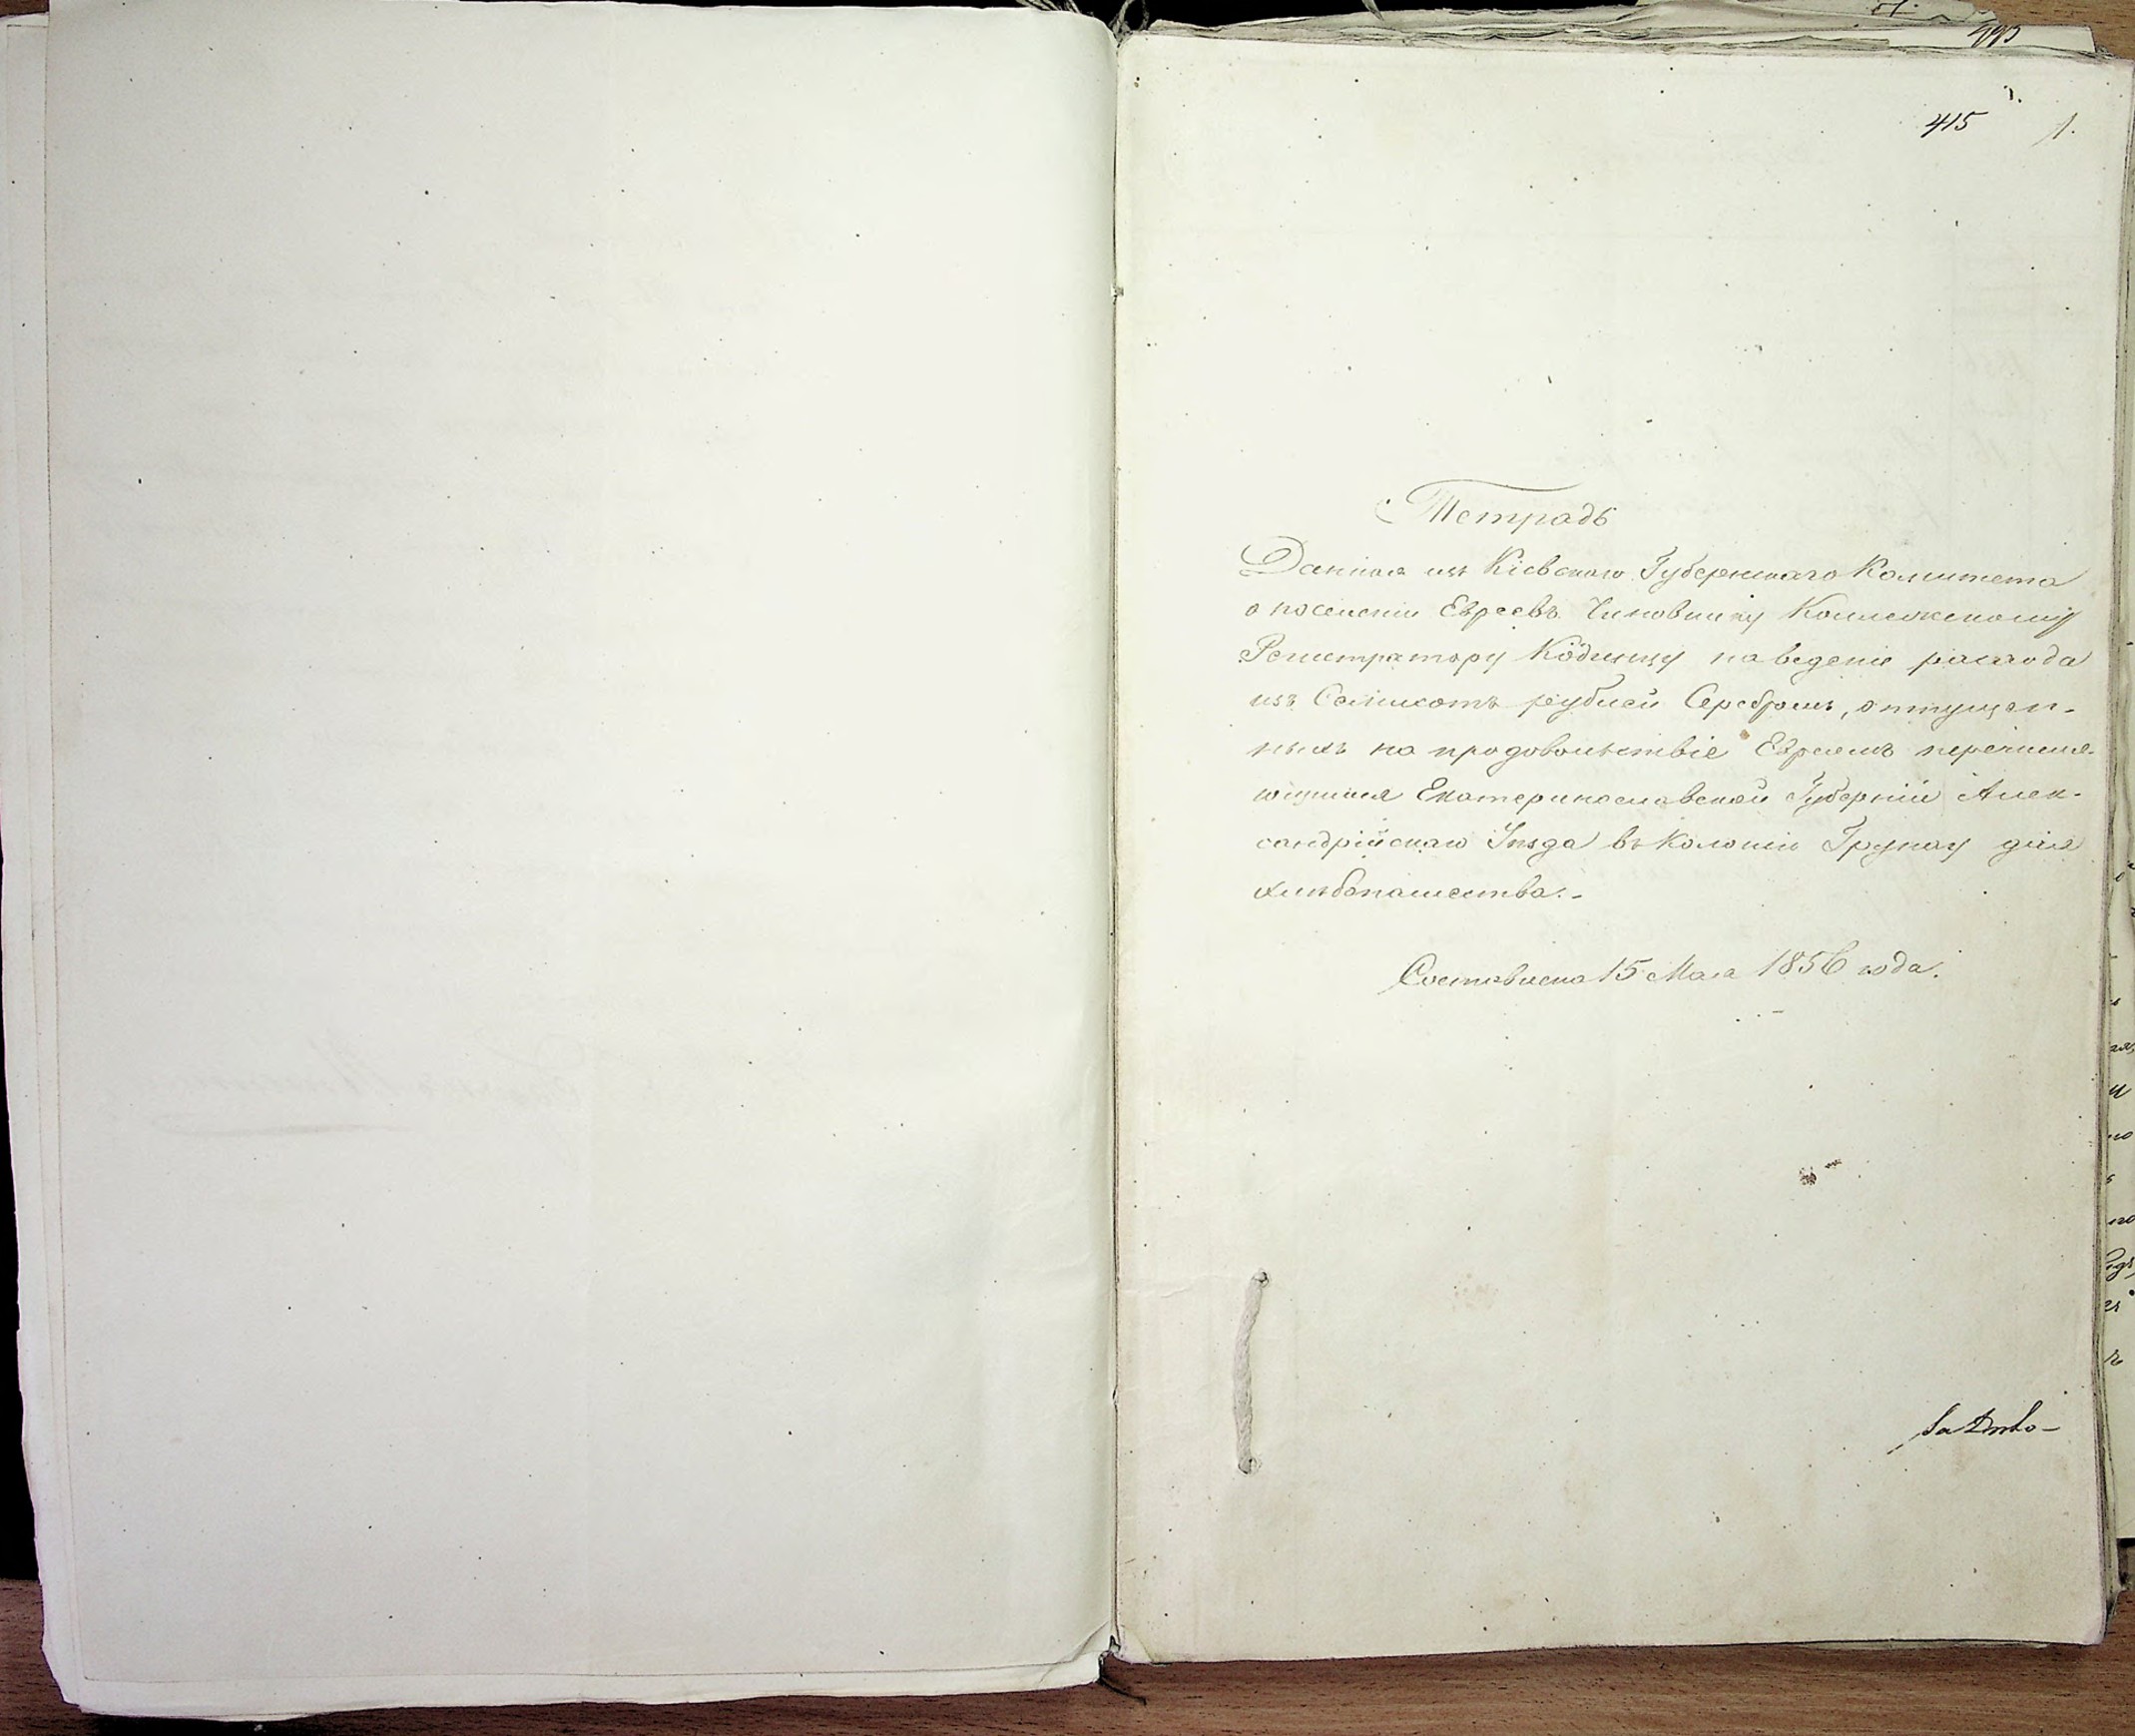 415 1.
Тетрадь
Данная изъ Кіевскаго Губернскаго Комитета
о поселеніи Евреевъ Чиновнику Коллежскому
Регистратору на веденіе расхода
изъ рублей Серебромъ, отпущен-
ныхъ на продовольствіе Евреямъ перечисля-
ющимся Екатеринославской Губерніи Алек-
сандрійскаго Уѣзда въ Колонію Грунау для
хлѣбопашества.-
Составлена 15 Мая 1856 года.